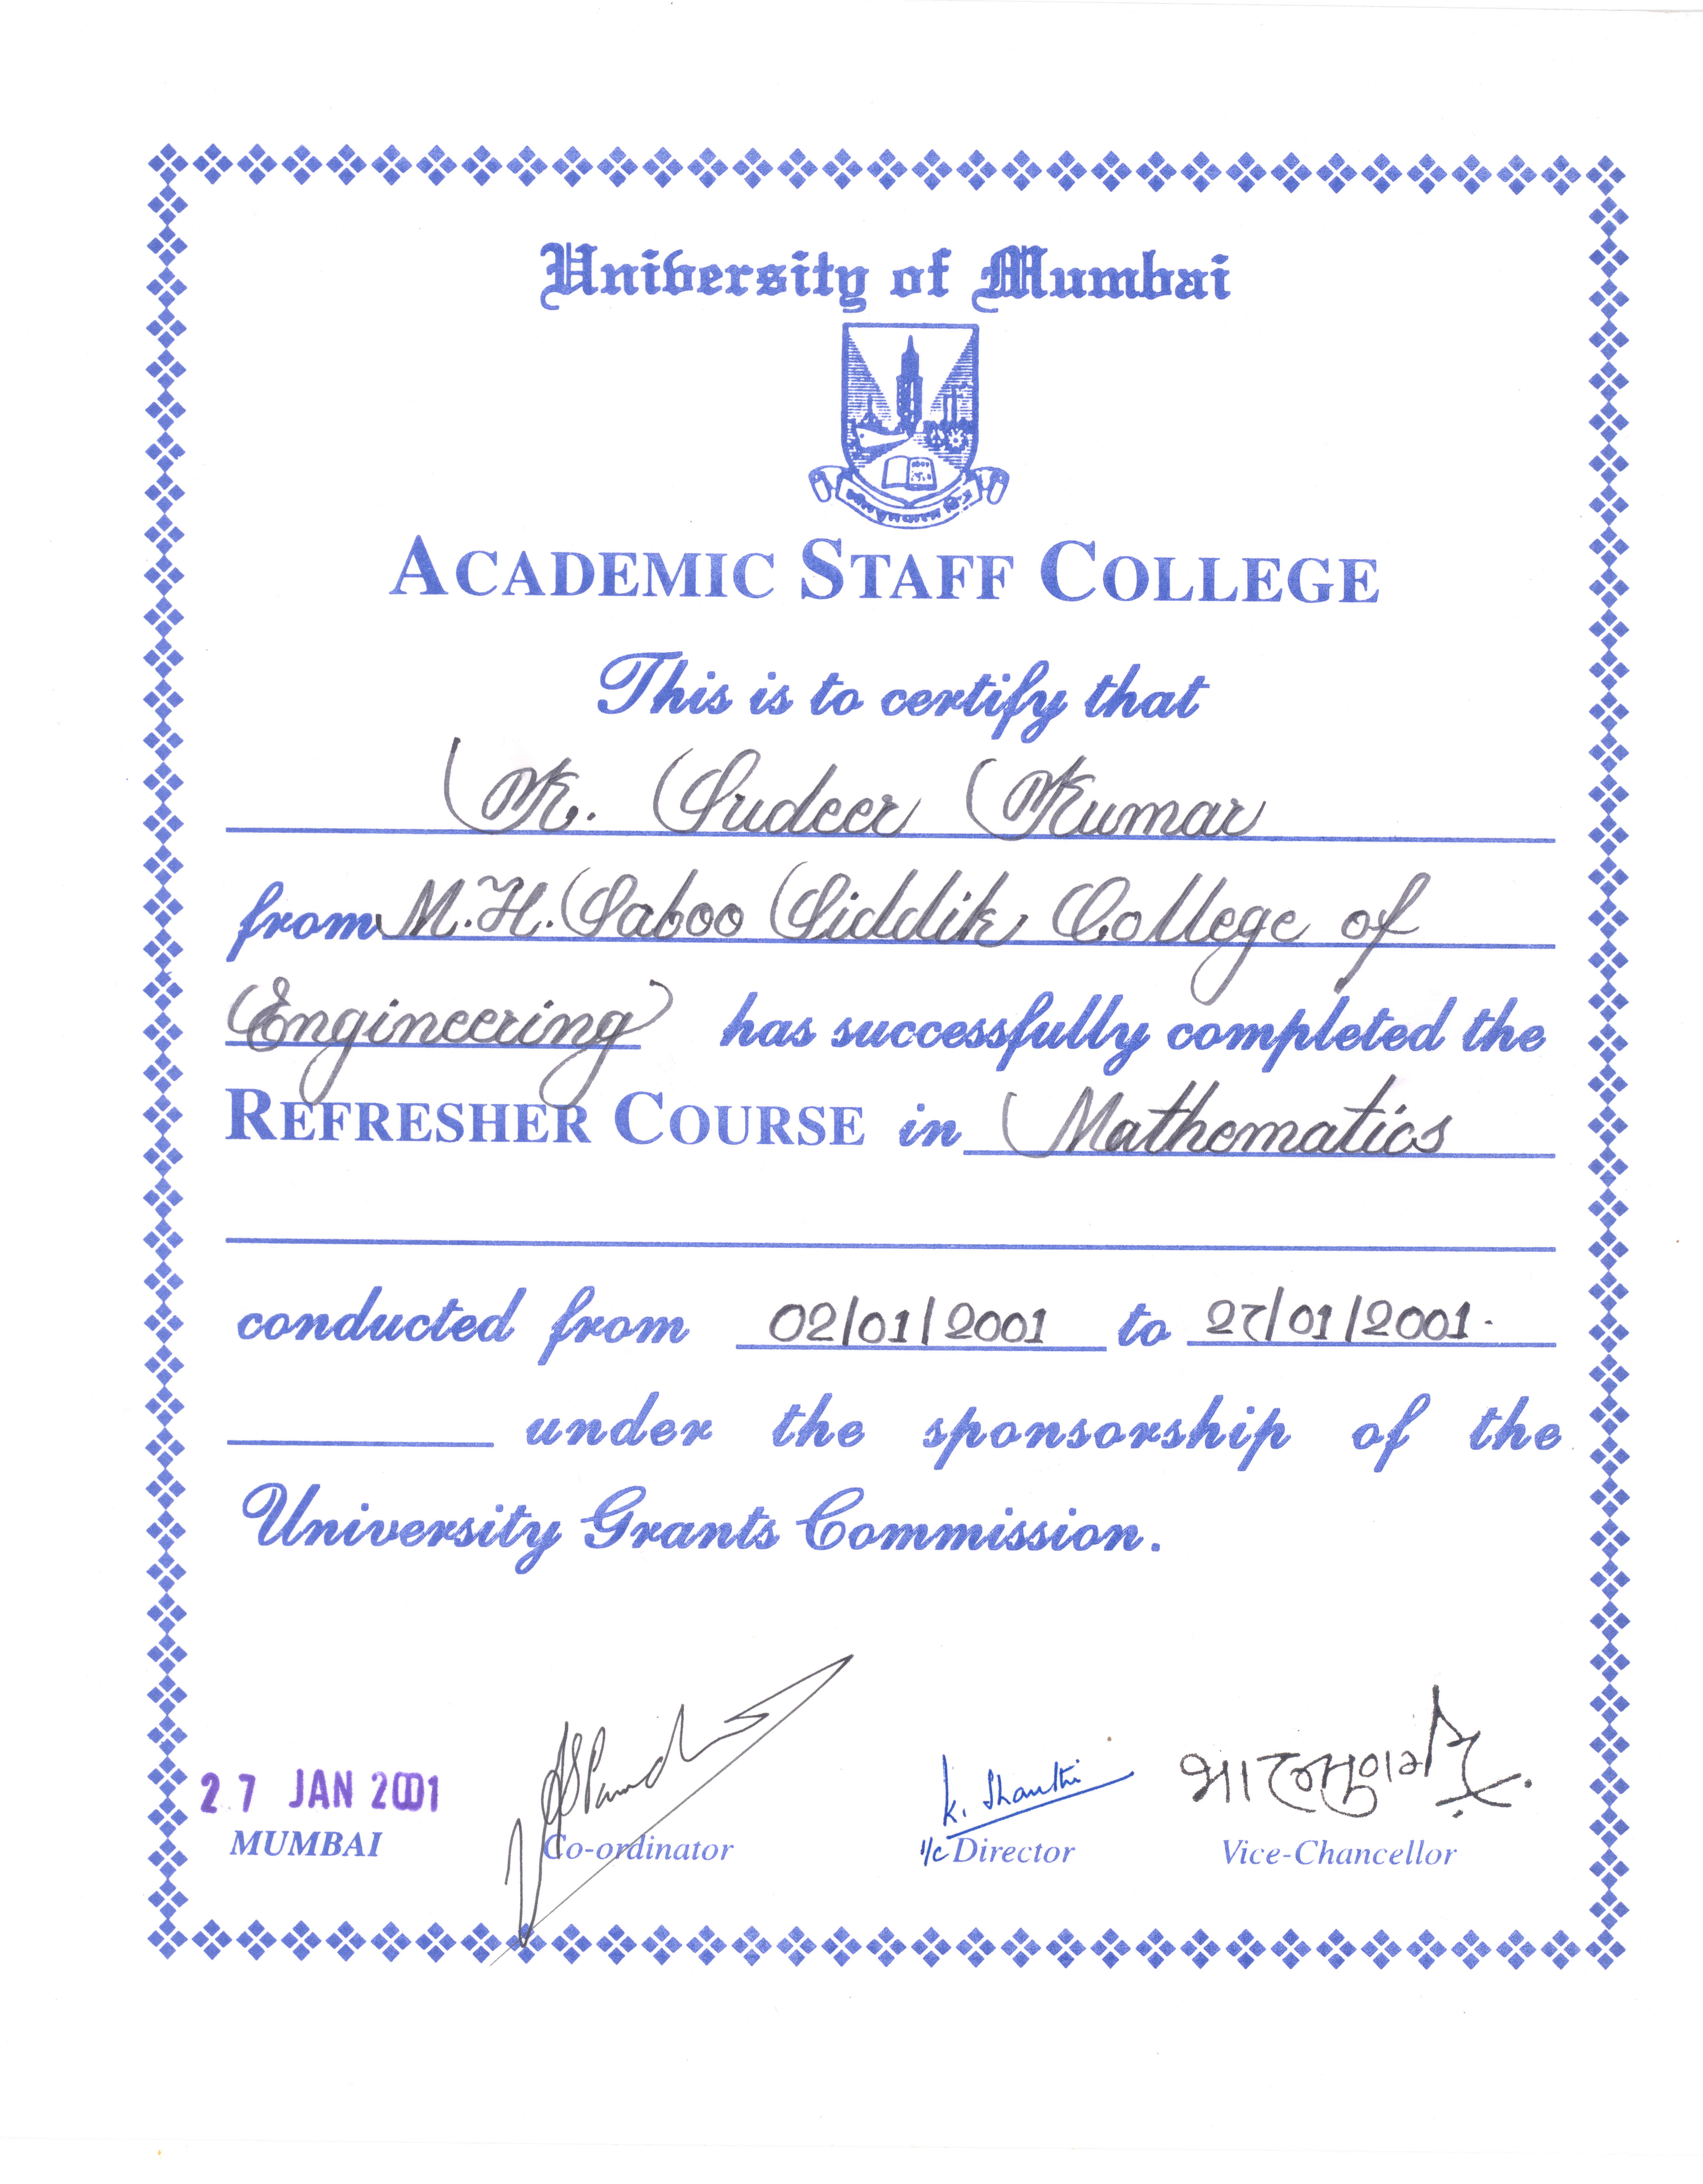 University of Mumbai
ACADEMIC STAFF COLLEGE
This is to certify that
K. Sudeer Kumar
from M.H. Saboo Siddik College of
Engineering has successfully completed the
REFRESHER COURSE in Mathematics
conducted from 02/01/2001 to 27/01/2001.
under the sponsorship of the
University Grants Commission.
K. Shanthi
27 JAN 2001
MUMBAI Co-ordinator I/c Director Vice-Chancellor